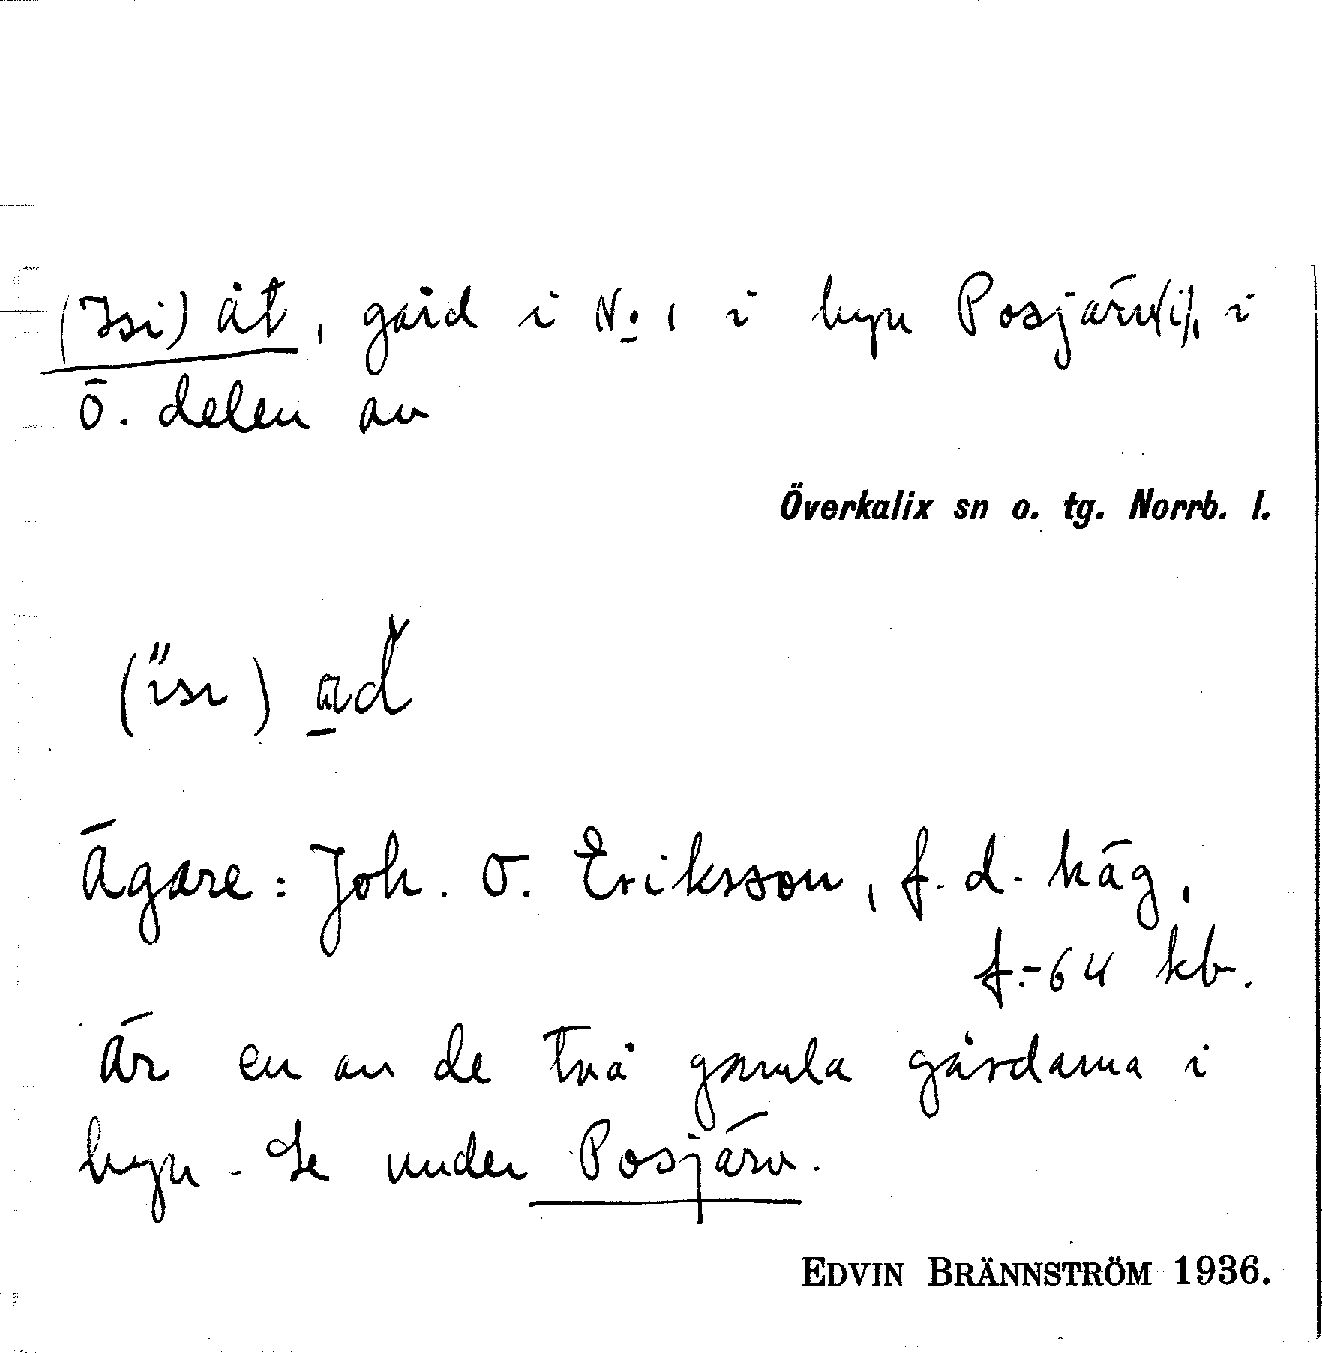 (Isi) åt, gård i No 1 i byn Posjärv(i), i
ö. delen av
Överkalix sn o. tg. Norrb. l.
(ïsı)
Ägare: Joh. O. Eriksson, f.d. häg,
f. -64 kb.
Är en av de två gamla gårdarna i
byn - Se under Posjärv.
EDVIN BRÄNNSTRÖM 1936.